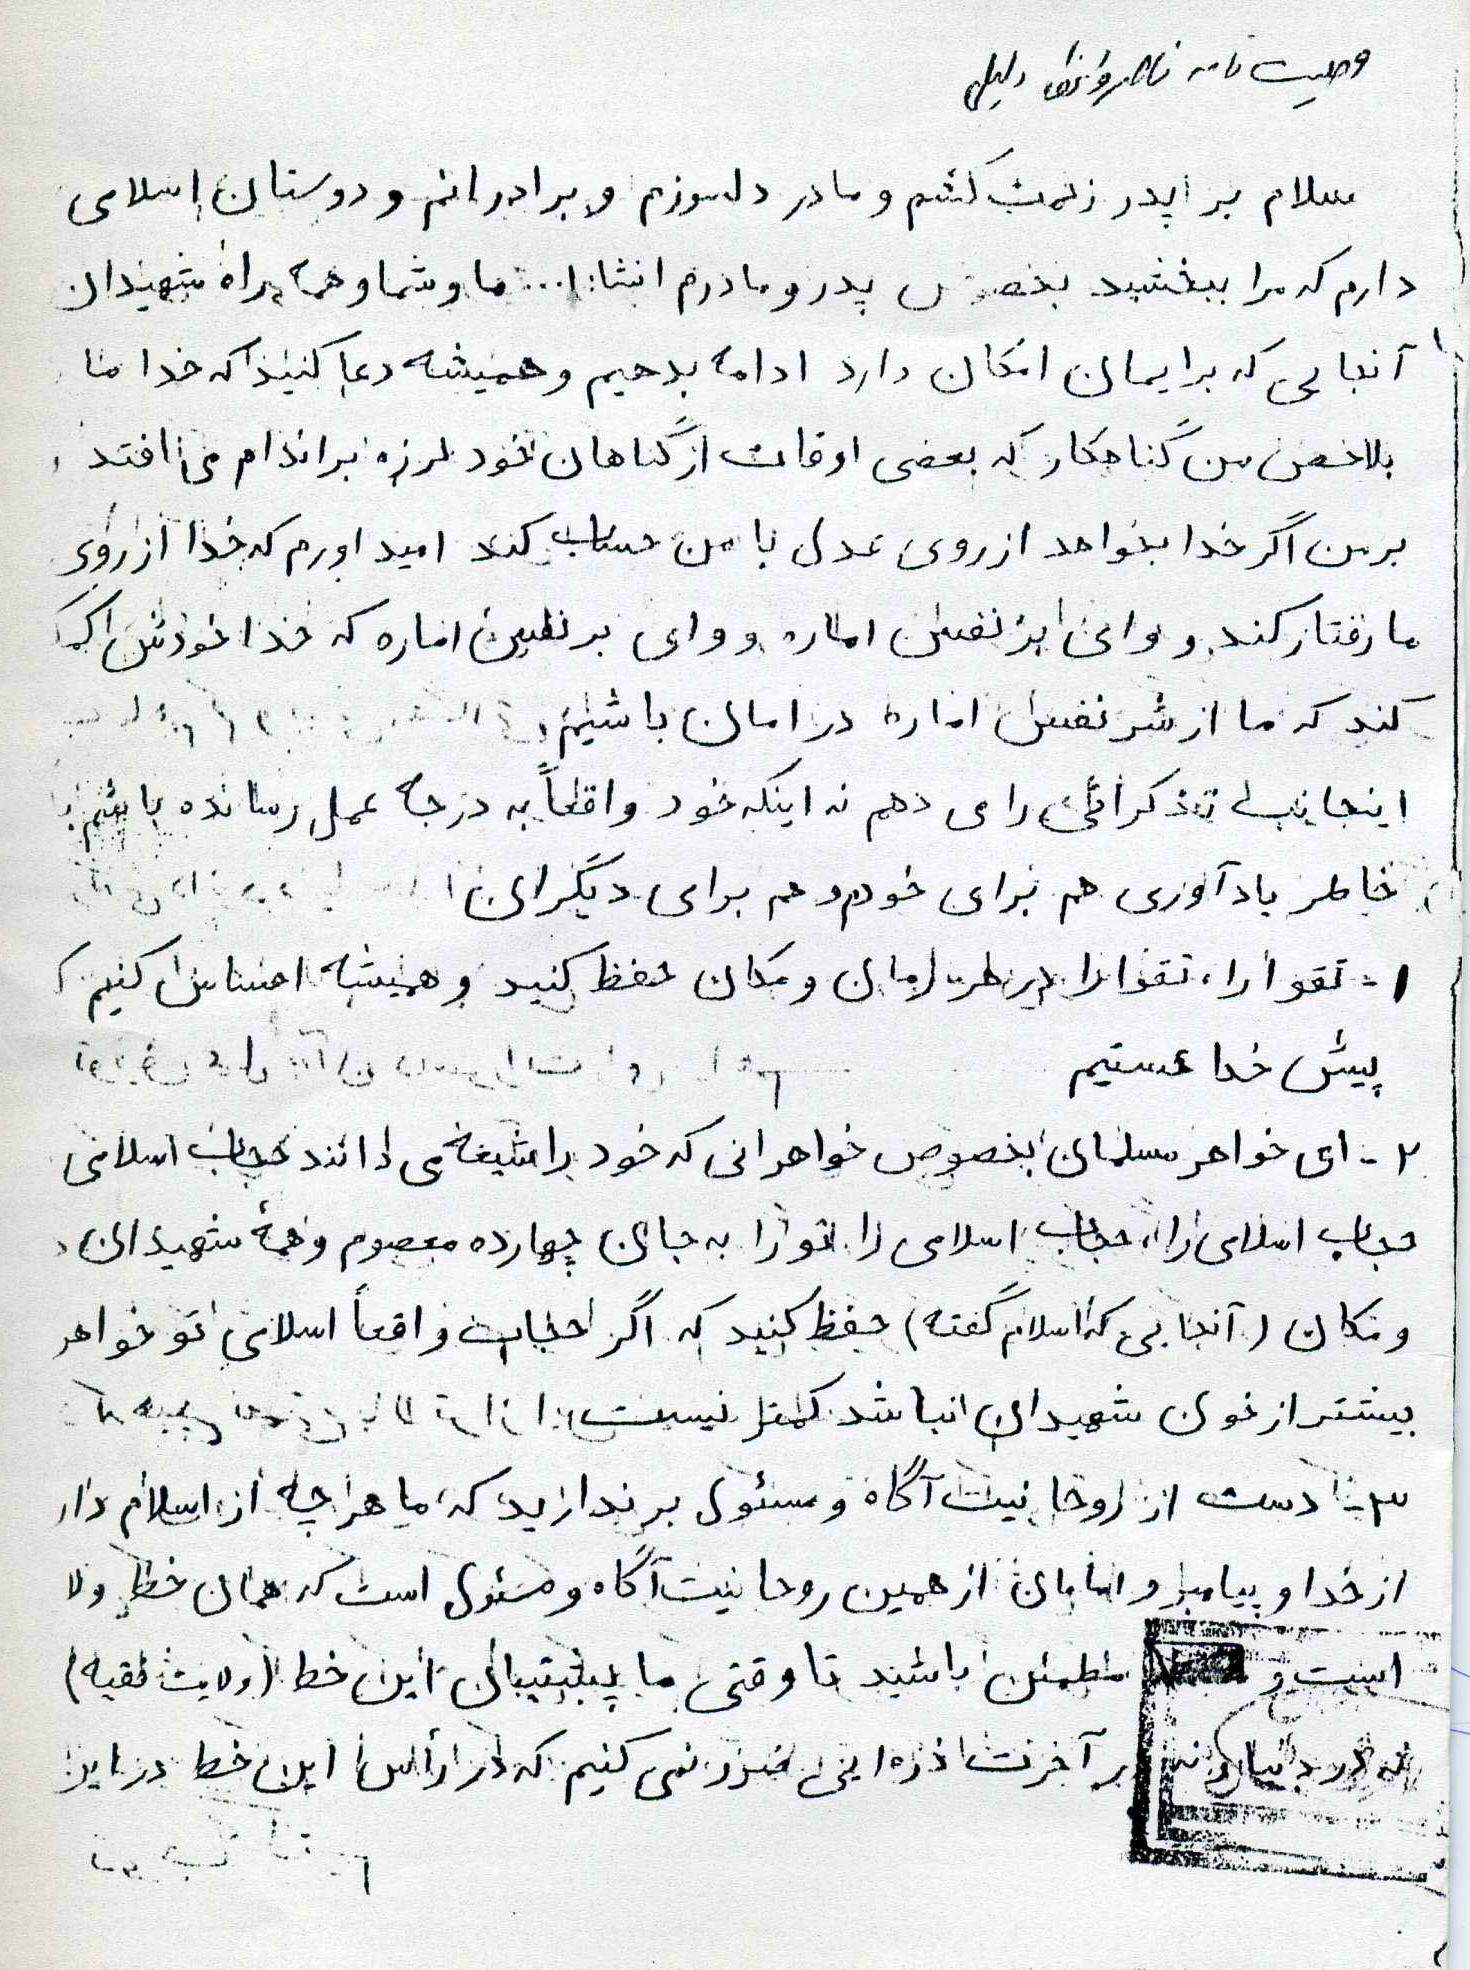 وصیت نامه
سلام بر پدر زحمت کشم و مادر دلسوزم و برادرانم و دوستان اسلامی
دارم که مرا ببخشید بخصوص پدر و مادرم انشاا... ما و شما و همه براه شهیدان
آنجایی که برایمان امکان دارد ادامه بدهیم و همیشه دعا کنید که خدا ما
بلاخص من گناهکار که بعضی اوقات از گناهان خود لرزه براندام می افتد
برمن اگر خدا بخواهد از روی عدل با من حساب کند امیداورم که خدا از روی
ما رفتار کند و وای بر نفس اماره و وای بر نفس اماره که خدا خودش
کند که ما از شر نفس اماره در امان باشیم
اینجانب تذکراتی را می دهم نه اینکه خود واقعاً به درجه عمل رسانده باشم
خاطر یادآوری هم برای خودم و هم برای دیگران
۱- تقوا را، تقوا را در هر زمان و مکان حفظ کنید و همیشه احساس کنیم
پیش خدا هستیم
۲- ای خواهر مسلمان بخصوص خواهرانی که خود را شیعه می دانند حجاب اسلامی
حجاب اسلامی را، حجاب اسلامی را تو را به جان چهارده معصوم و همهٔ شهیدان
و مکان (آنجایی که اسلام گفته) حفظ کنید که اگر حجاب واقعاً اسلامی تو خواهر
بیشتر از خون شهیدان نباشد کمتر نیست
۳- دست از روحانیت آگاه و مسئول برندارید که ما هر چه از اسلام دار
از خدا و پیامبر و امامان از همین روحانیت آگاه و مسئول است که همان خط ولا
است و مطمئن باشید تا وقتی ما پشتیبان این خط (ولایت فقیه)
نه در دنیا و نه در آخرت ذره ایی ضرر نمی کنیم که در رأس این خط در این